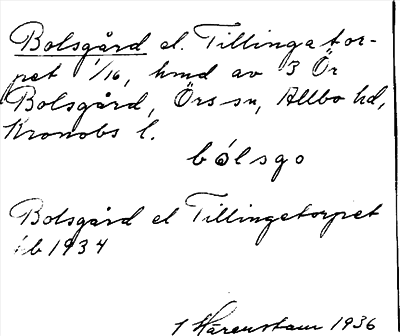 Bolsgård el. Tillingator-
pet 1/16, hmd av 3 Ör
Bolsgård, Örs sn, Allbo hd,
Kronobs l.
bólsgo
Bolsgård el Tillingetorpet
jb 1934
1936